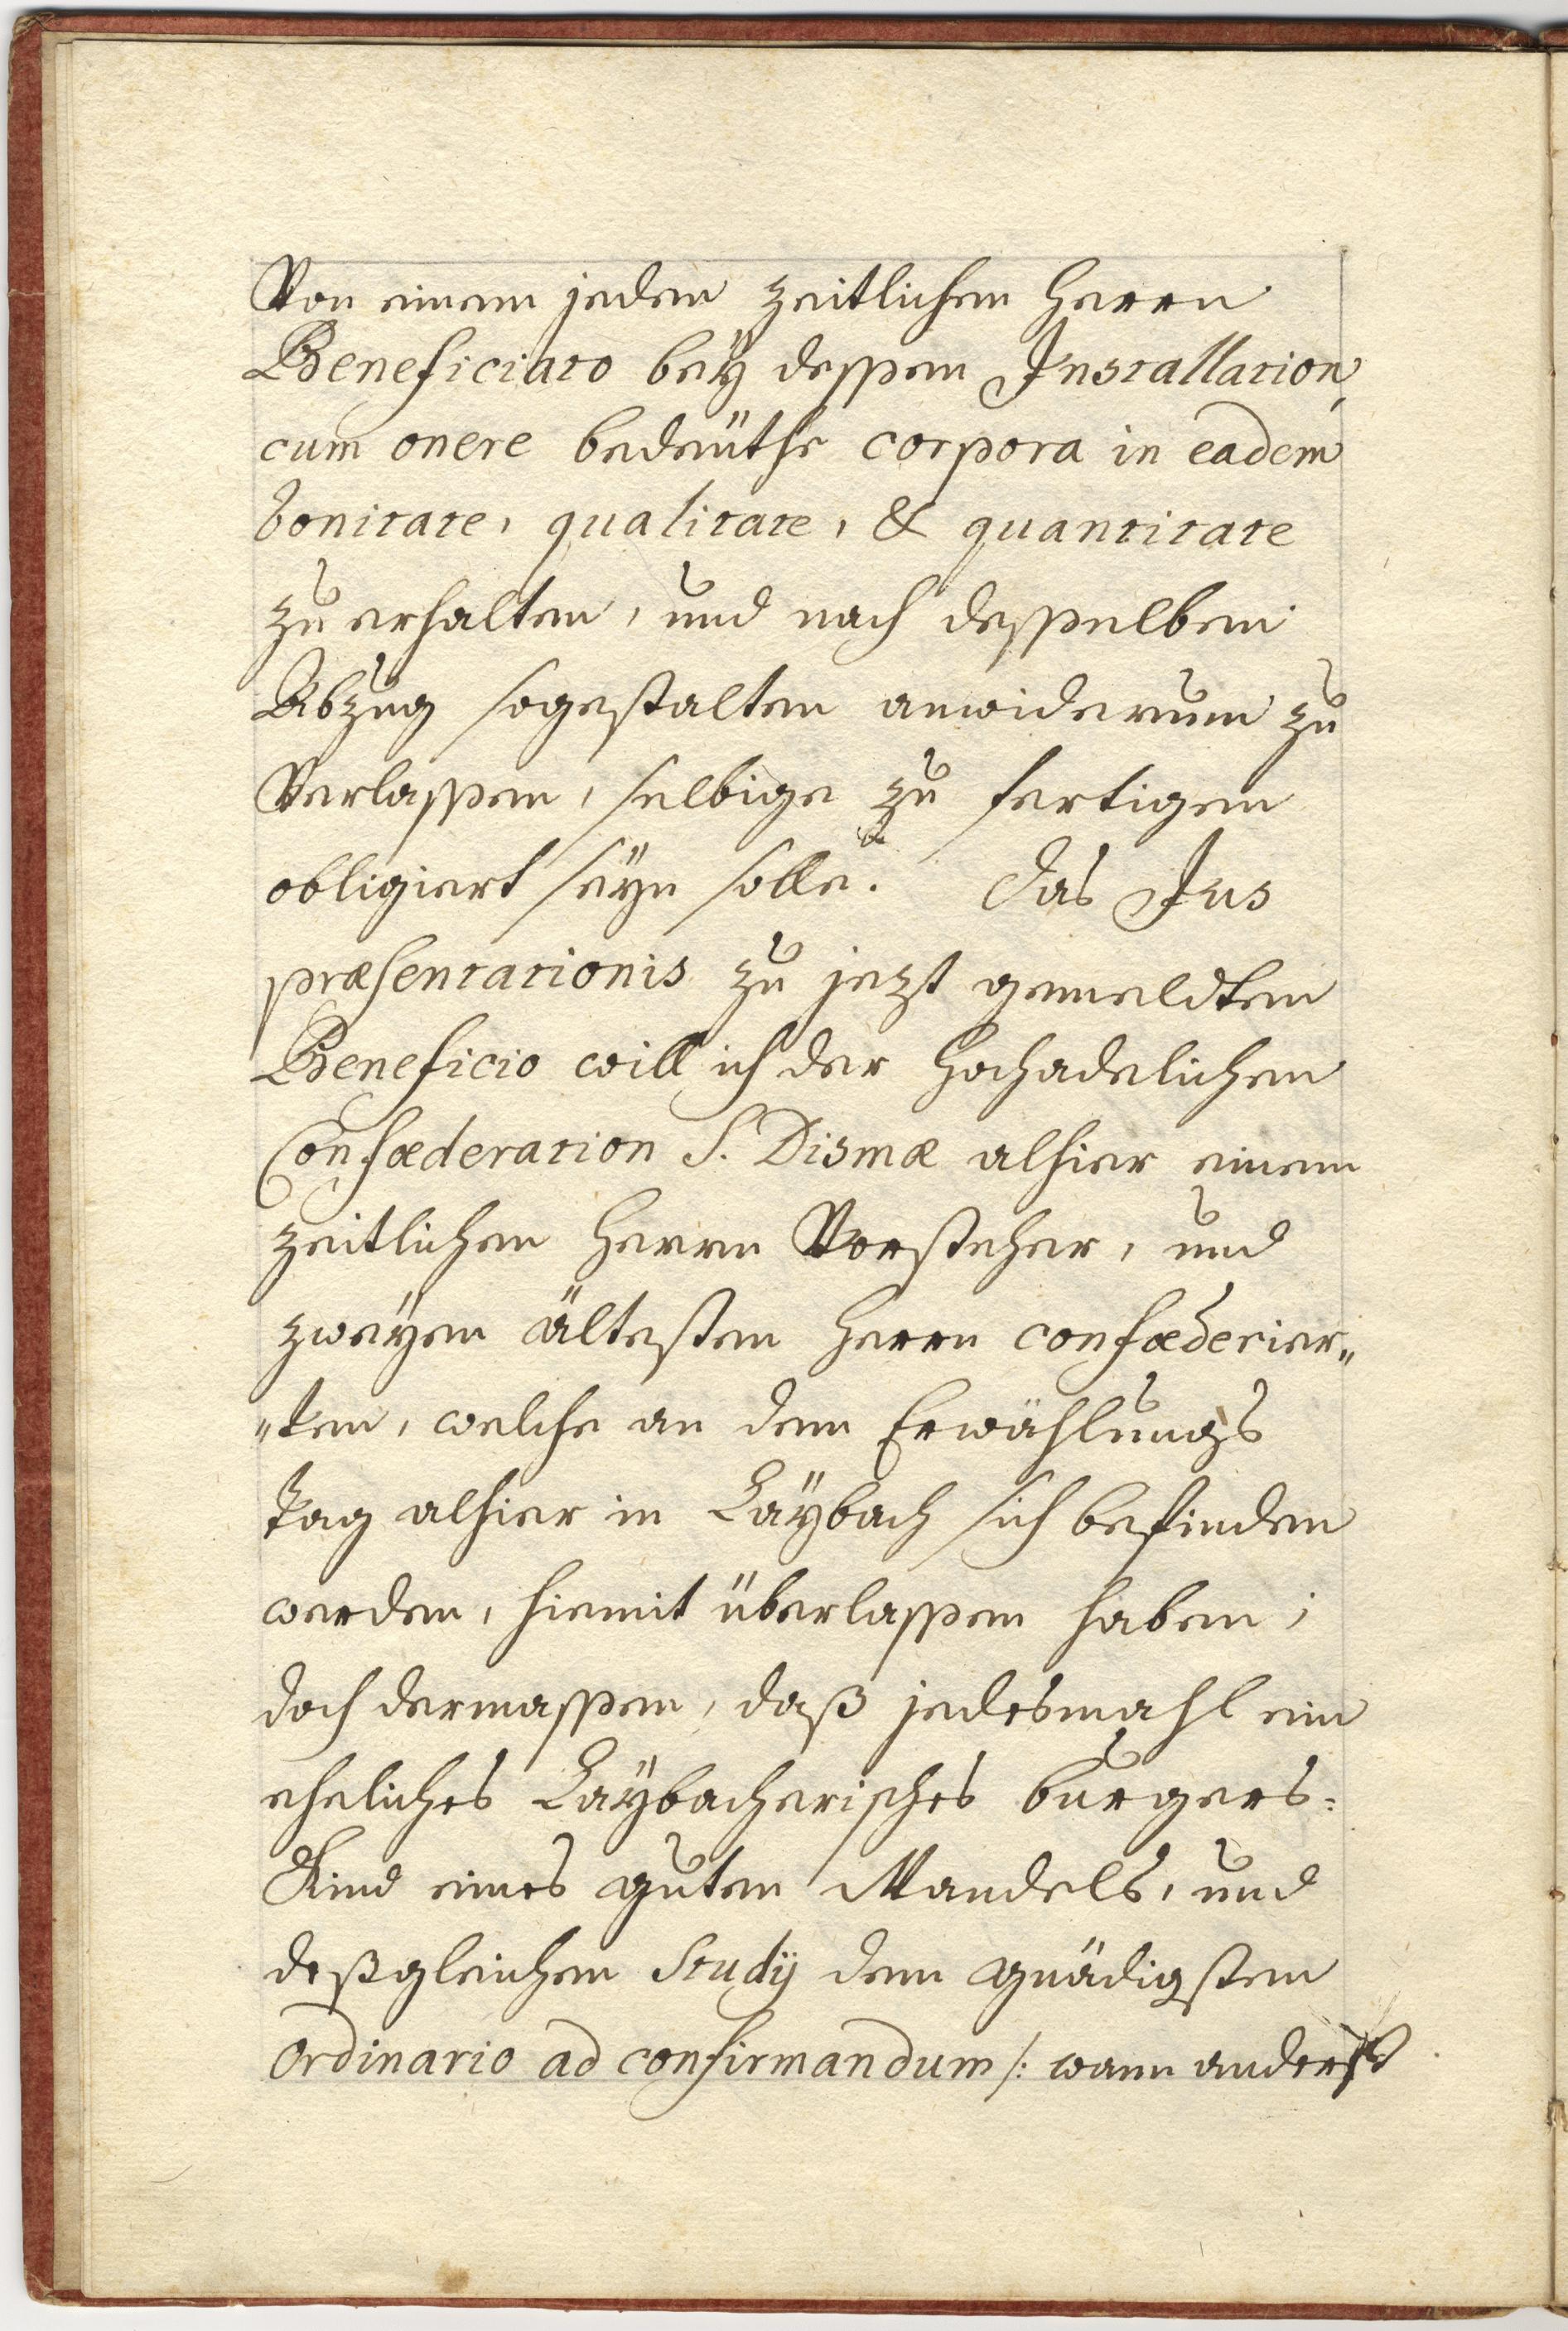 Von einem jeden zeitlichen Herrn
Beneficiato beÿ dessen Installation,
cum onere bedeuthe corpora in eadem
bonitate, qualitate, & quantitate
zu erhalten, und nach desselben
Abzug sogestalten anwiderumb zu
Verlassen, selbige zu fertigen
obligiert seÿn solle. Das Jus
præsentationis zu jezt gemeldtem
Beneficio will ich der Hochadelichen
Confœderation S. Dismæ alhier einem
zeitlichen Herrn Vorsteher, und
zweÿen ältesten Herrn confœderier„
„ten, welche an dem Erwählungs
Tag alhier in Laÿbach sich befinden
werden, hiemit überlassen haben;
doch dermassen, daß jedesmahl ein
eheliches Laÿbacherisches burgers=
Kind eines guten Wandels, und
deßgleichen Studÿ dem gnädigsten
Ordinario ad confirmandum /: wann anderst